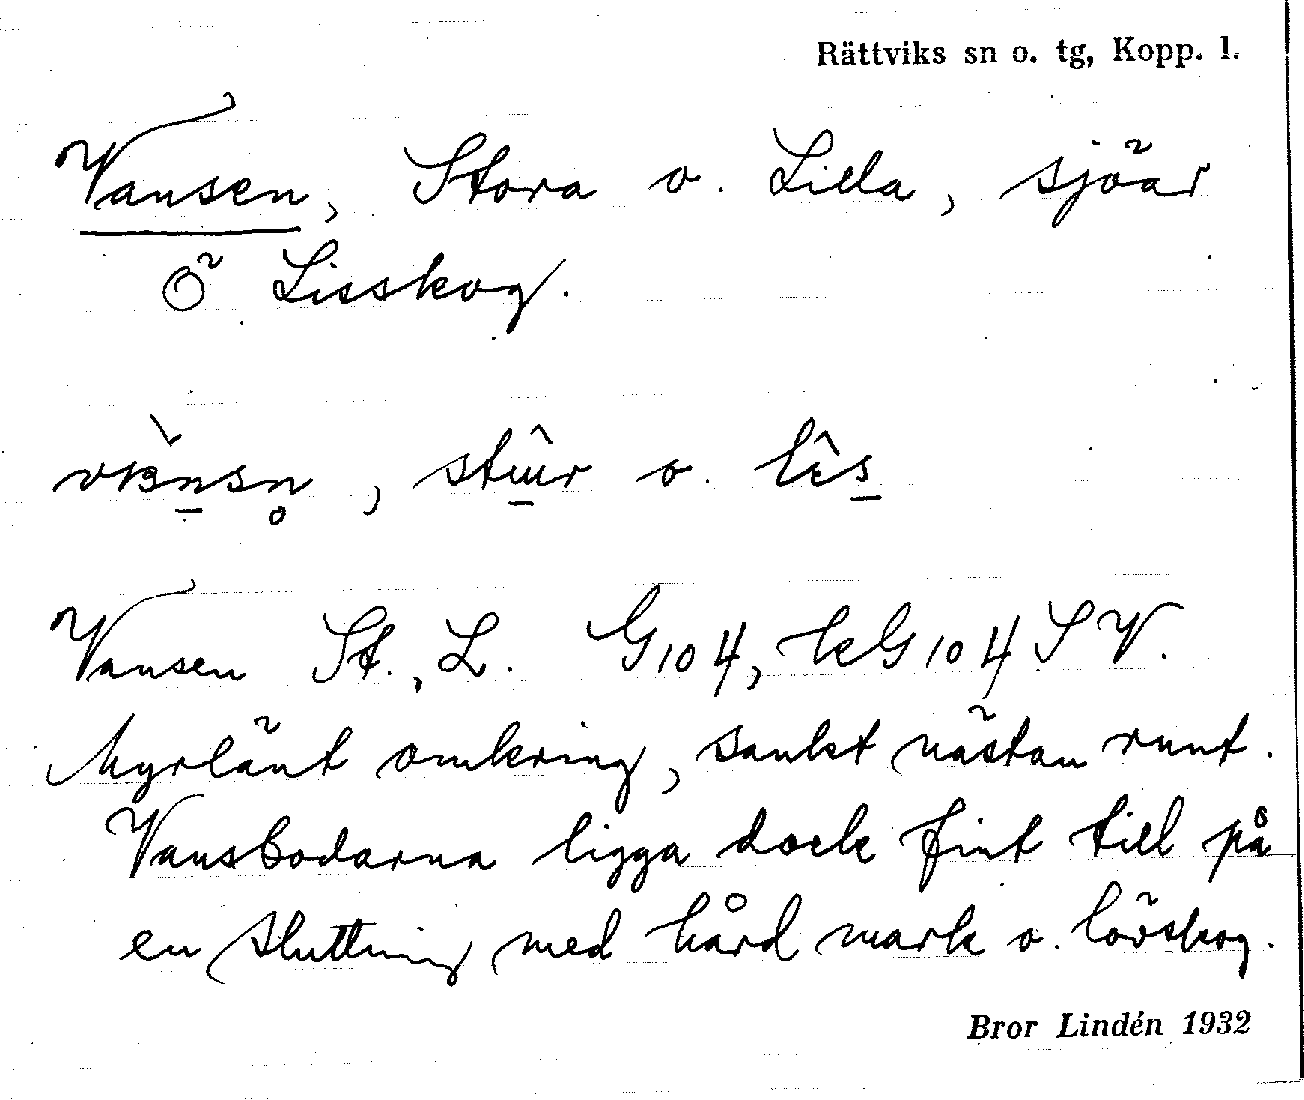 Rättviks sn o. tg, Kopp. l.
Vansen, Stora o. Lilla, sjöar
Ö Lisskog.
, o.
Vansen St., L. G104, kG104 SV.
Myrlänt omkring, sankt nästan runt.
Vansbodarna ligga dock fint till på
en sluttning med hård mark o. lövskog.
Bror Lindén 1932